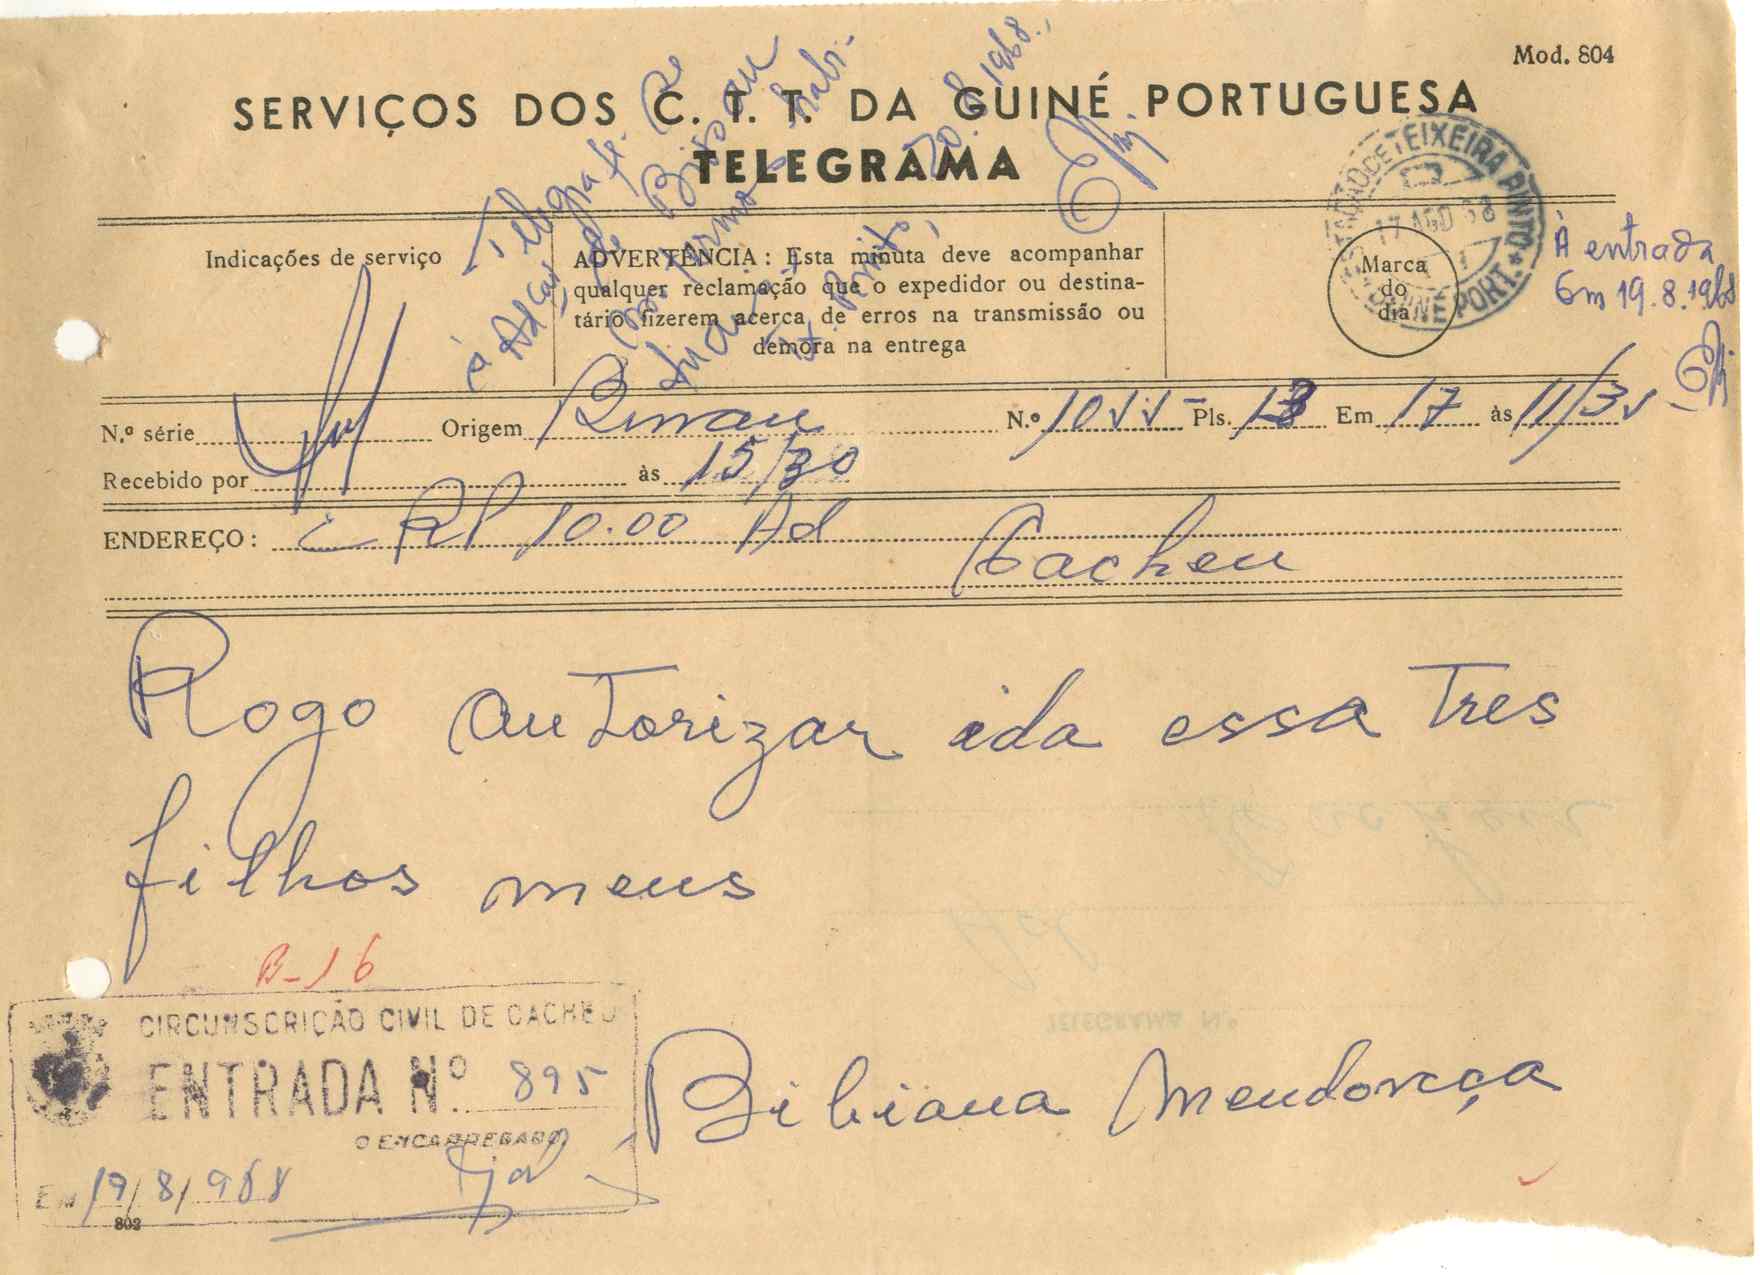 Mod. 804
SERVIÇOS DOS C. T. T. DA GUINÉ PORTUGUESA
TELEGRAMA
Indicações de serviço
ADVERTÊNCIA : Esta minuta deve acompanhar
qualquer reclamação que o expedidor ou destina-
tário fizerem acerca de erros na transmissão ou
demora na entrega
Marca
do
dia
TEIXEIRA PINTO
17 AGO 68
GUINÉ PORT.
À entrada
Em 19.8.1968
20.8.1968
N.º série Origem Bissau N.º Pls. 13 Em 17 às
Recebido por às 15/30
ENDEREÇO : RP 10.00 Ad
Cacheu
Rogo autorizar ida essa tres
filhos meus
B-16
CIRCUNSCRIÇÃO CIVIL DE CACHEU
ENTRADA N.º 895
O ENCARREGADO
EM 19/8/968
Bibiana Mendonça
802
TELEGRAMA N.º